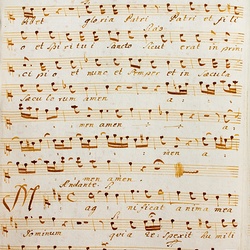 gloria Patri Patri et fili
o et Spiritui Sancto Sicut erat in prin
cipio et nunc et semper et in Saecula
Saeculorum amen a
men amen a
men a
men amen.
Andante
Magnificat anima mea
Dominum quia respexit humili